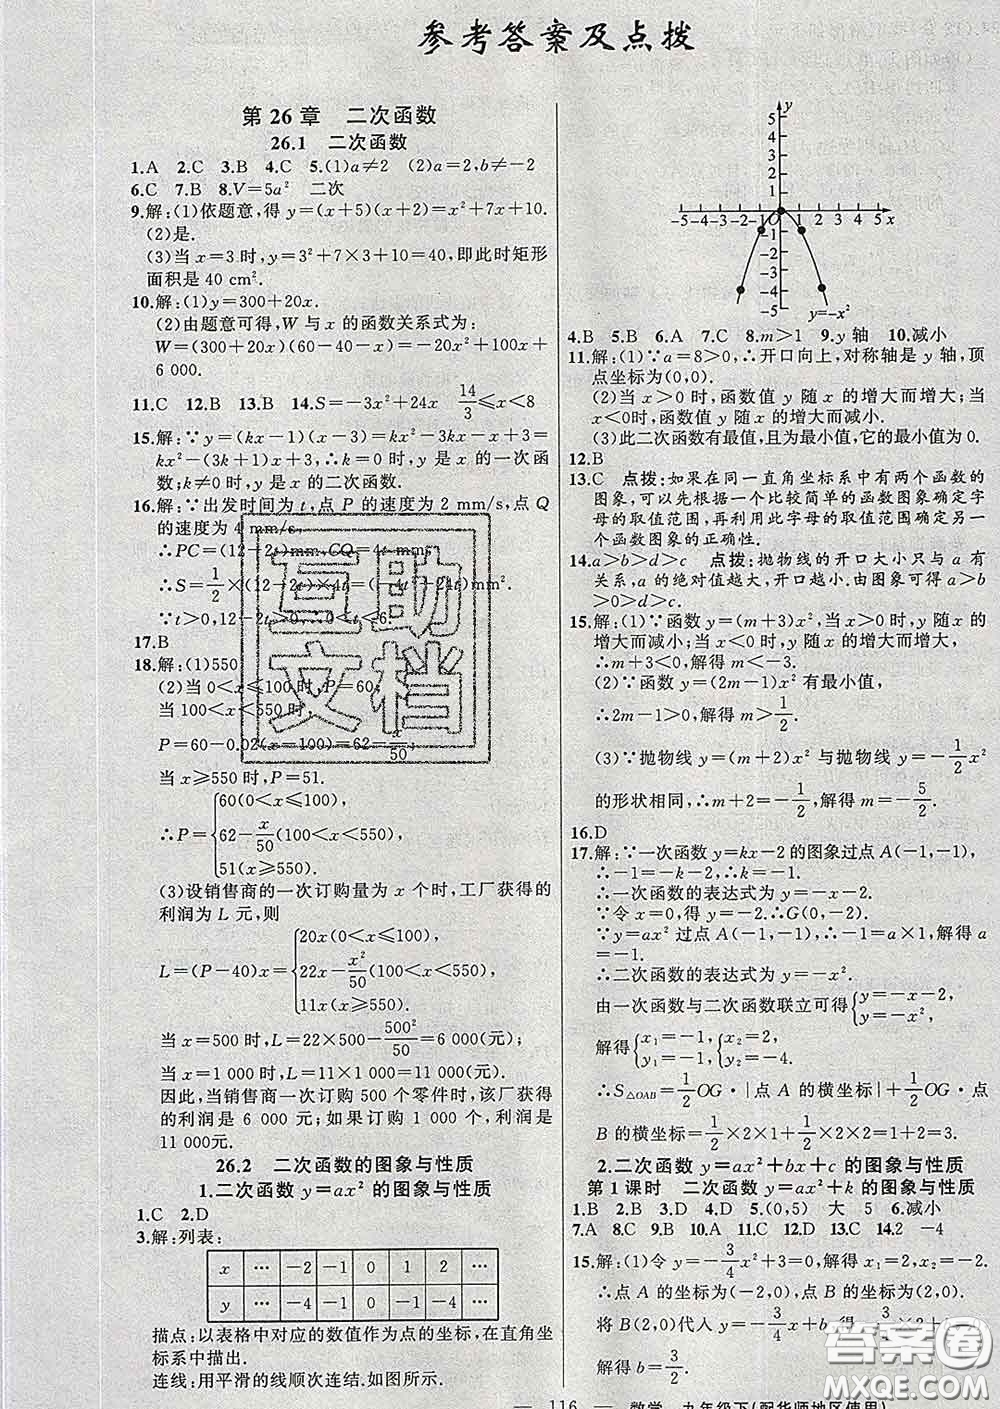 参考答案及点拨
第26章 二次函数
26.1 二次函数
1.A 2.C 3.B 4.C 5.(1)a≠2 (2)a=2,b≠-2
6.C 7.B 8.V=5a² 二次
9.解:(1)依题意,得 y=(x+5)(x+2)=x²+7x+10.
(2)是.
(3)当 x=3 时,y=3²+7×3+10=40,即此时矩形
面积是 40 cm².
10.解:(1)y=300+20x.
(2)由题意可得,W 与 x 的函数关系式为:
W=(300+20x)(60-40-x)=-20x²+100x+
6 000.
11.C 12.B 13.B 14.S=-3x²+24x 14/3≤x<8
15.解:∵y=(kx-1)(x-3)=kx²-3kx-x+3=
kx²-(3k+1)x+3,∴k=0 时,y 是 x 的一次函
数;k≠0 时,y 是 x 的二次函数.
16.解:∵出发时间为 t,点 P 的速度为 2 mm/s,点 Q
的速度为 4 mm/s,
∴PC=(12-2t)mm,CQ=4t mm,
∴S=1/2×(12-2t)×4t=(-4t²+24t)mm².
∵t>0,12-2t>0,∴0<t<6.
17.B
18.解:(1)550
(2)当 0<x≤100 时,P=60;
当 100<x<550 时,
P=60-0.02(x-100)=62-x/50;
当 x≥550 时,P=51.
∴P={60(0<x≤100),
62-x/50(100<x<550),
51(x≥550).
(3)设销售商的一次订购量为 x 个时,工厂获得的
利润为 L 元,则
L=(P-40)x={20x(0<x≤100),
22x-x²/50(100<x<550),
11x(x≥550).
当 x=500 时,L=22×500-500²/50=6 000(元);
当 x=1 000 时,L=11×1 000=11 000(元).
因此,当销售商一次订购 500 个零件时,该厂获得
的利润是 6 000 元;如果订购 1 000 个,利润是
11 000元.
26.2 二次函数的图象与性质
1.二次函数 y=ax² 的图象与性质
1.C 2.D
3.解:列表:
x … -2 -1 0 1 2 …
y … -4 -1 0 -1 -4 …
描点:以表格中对应的数值作为点的坐标,在直角坐
标系中描出.
连线:用平滑的线顺次连结.如图所示.
y
5
4
3
2
1
-5 -4 -3 -2 -1 O 1 2 3 4 5 x
-1
-2
-3
-4
-5
y=-x²
4.B 5.B 6.A 7.C 8.m>1 9.y 轴 10.减小
11.解:(1)∵a=8>0,∴开口向上,对称轴是 y 轴,顶
点坐标为(0,0).
(2)当 x>0 时,函数值 y 随 x 的增大而增大;当
x<0时,函数值 y 随 x 的增大而减小.
(3)此二次函数有最值,且为最小值,它的最小值为 0.
12.B
13.C 点拨:如果在同一直角坐标系中有两个函数的
图象,可以先根据一个比较简单的函数图象确定字
母的取值范围,再利用此字母的取值范围确定另一
个函数图象的正确性.
14.a>b>d>c 点拨:抛物线的开口大小只与 a 有
关系,a 的绝对值越大,开口越小.由图象可得 a>b
>0>d>c.
15.解:(1)∵函数 y=(m+3)x²,当 x>0时,y 随x的
增大而减小;当 x<0 时,y 随 x 的增大而增大,
∴m+3<0,解得 m<-3.
(2)∵函数 y=(2m-1)x² 有最小值,
∴2m-1>0,解得 m>1/2.
(3)∵抛物线 y=(m+2)x² 与抛物线 y=-1/2x²
的形状相同,∴m+2=-1/2,解得 m=-5/2.
16.D
17.解:∵一次函数 y=kx-2 的图象过点 A(-1,-1),
∴-1=-k-2,∴k=-1.
∴一次函数的表达式为 y=-x-2.
∵令 x=0,得 y=-2.∴G(0,-2).
∵y=ax² 过点 A(-1,-1),∴-1=a×1,解得 a
=-1.
∴二次函数的表达式为 y=-x².
由一次函数与二次函数联立可得{y=-x-2,
y=-x²,
解得{x₁=-1, {x₂=2,
y₁=-1, y₂=-4.
∴S△OAB=1/2OG·|点 A 的横坐标|+1/2OG·点
B 的横坐标=1/2×2×1+1/2×2×2=3.
2.二次函数 y=ax²+bx+c 的图象与性质
第 1 课时 二次函数 y=ax²+k 的图象与性质
1.B 2.B 3.D 4.D 5.(0,5) 大 5 6.减小
7.A 8.C 9.B 10.A 11.C 12.D 13.C 14.2 -4
15.解:(1)令 y=-3/4x²+3=0,解得 x₁=2,x₂=-2.
∴点 A 的坐标为(-2,0),点 B 的坐标为(2,0).
将 B(2,0)代入 y=-3/4x+b,得
解得 b=3/2.
— 116 — 数学 九年级下(配华师地区使用)
互助
文档
答案圈
MXQE.COM